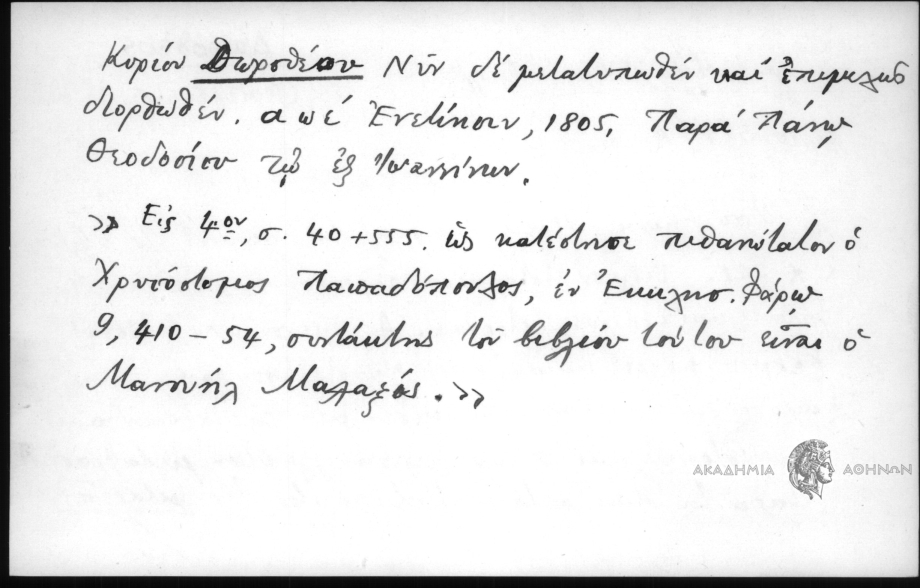 Κυρίου Δωροθέου Νῦν δέ μετατυπωθέν καί ἐπιμελῶς
διορθωθέν. αωέ Ἐνετίησιν, 1805, Παρά Πάνῳ
Θεοδοσίου τῷ ἐξ Ἰωαννίνων.
» Εἰς 4ον, σ. 40+555. ὡς κατέστησε πιθανώτατον ὁ
Χρυσόστομος Παπαδόπουλος, ἐν Ἐκκλησ. Φάρῳ
9, 410-54, συντάκτης τοῦ βιβλίου τούτου εἶναι ὁ
Μανουήλ Μαλαξός. »
ΑΚΑΔΗΜΙΑ ΑΘΗΝΩΝ